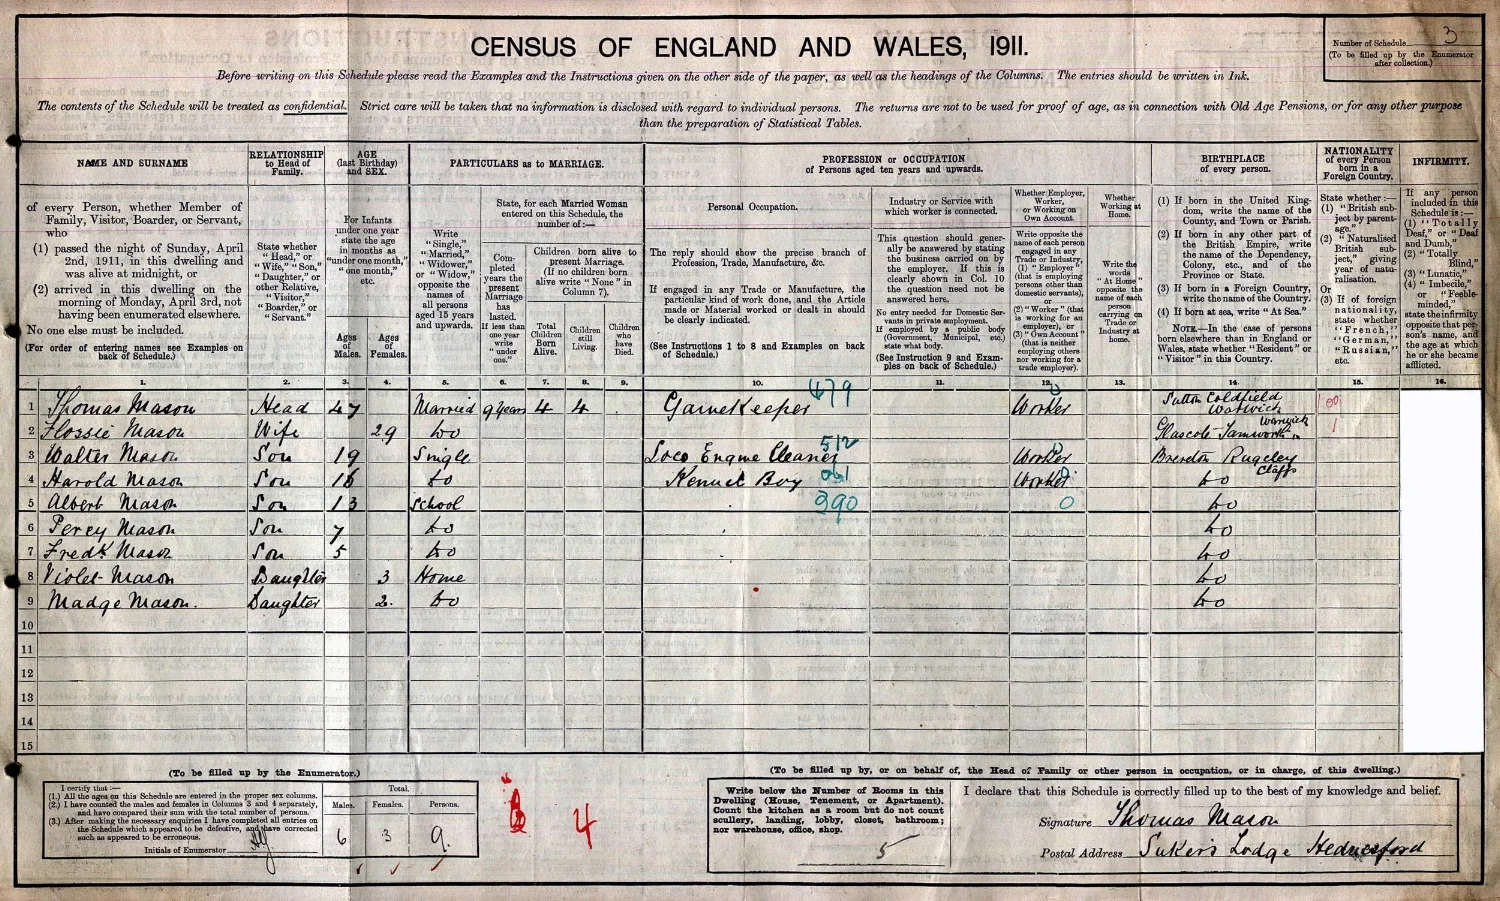 CENSUS OF ENGLAND AND WALES, 1911.
Number of Schedule 3
(To be filled up by the Enumerator
after collection.)
Before writing on this Schedule please read the Examples and the Instructions given on the other side of the paper, as well as the headings of the Columns. The entries should be written in Ink.
The contents of the Schedule will be treated as confidential. Strict care will be taken that no information is disclosed with regard to individual persons. The returns are not to be used for proof of age, as in connection with Old Age Pensions, or for any other purpose
than the preparation of Statistical Tables.
NAME AND SURNAME
of every Person, whether Member of
Family, Visitor, Boarder, or Servant,
who
(1) passed the night of Sunday, April
2nd, 1911, in this dwelling and
was alive at midnight, or
(2) arrived in this dwelling on the
morning of Monday, April 3rd, not
having been enumerated elsewhere.
No one else must be included.
(For order of entering names see Examples on
back of Schedule.)
RELATIONSHIP
to Head of
Family.
State whether
"Head," or
"Wife," "Son,"
"Daughter," or
other Relative,
"Visitor,"
"Boarder," or
"Servant."
AGE
(last Birthday)
and SEX.
For Infants
under one year
state the age
in months as
"under one month,"
"one month,"
etc.
Ages
of
Males.
Ages
of
Females.
PARTICULARS as to MARRIAGE.
Write
"Single,"
"Married,"
"Widower,"
or "Widow,"
opposite the
names of
all persons
aged 15 years
and upwards.
State, for each Married Woman
entered on this Schedule, the
number of:—
Completed
years the
present
Marriage
has
lasted.
If less than
one year
write
"under
one."
Children born alive to
present Marriage.
(If no children born
alive write "None" in
Column 7).
Total
Children
Born
Alive.
Children
still
Living.
Children
who
have
Died.
PROFESSION or OCCUPATION
of Persons aged ten years and upwards.
Personal Occupation.
The reply should show the precise branch of
Profession, Trade, Manufacture, &c.
If engaged in any Trade or Manufacture, the
particular kind of work done, and the Article
made or Material worked or dealt in should
be clearly indicated.
(See Instructions 1 to 8 and Examples on back
of Schedule.)
Industry or Service with
which worker is connected.
This question should gener-
ally be answered by stating
the business carried on by
the employer. If this is
clearly shown in Col. 10
the question need not be
answered here.
No entry needed for Domestic Ser-
vants in private employment.
If employed by a public body
(Government, Municipal, etc.)
state what body.
(See Instruction 9 and Exam-
ples on back of Schedule.)
Whether Employer,
Worker,
or Working on
Own Account.
Write opposite the
name of each person
engaged in any
Trade or Industry,
(1) "Employer"
(that is employing
persons other than
domestic servants),
or
(2) "Worker" (that
is working for an
employer), or
(3) "Own Account"
(that is neither
employing others
nor working for a
trade employer).
Whether
Working at
Home.
Write the
words
"At Home"
opposite the
name of each
person
carrying on
Trade or
Industry at
home.
BIRTHPLACE
of every person.
(1) If born in the United King-
dom, write the name of the
County, and Town or Parish.
(2) If born in any other part of
the British Empire, write
the name of the Dependency,
Colony, etc., and of the
Province or State.
(3) If born in a Foreign Country,
write the name of the Country.
(4) If born at sea, write "At Sea."
NOTE.—In the case of persons
born elsewhere than in England or
Wales, state whether "Resident" or
"Visitor" in this Country.
NATIONALITY
of every Person
born in a
Foreign Country.
State whether:—
(1) "British sub-
ject by parent-
age."
(2) "Naturalised
British sub-
ject," giving
year of natu-
ralisation.
Or
(3) If of foreign
nationality,
state whether
"French,"
"German,"
"Russian,"
etc.
INFIRMITY.
If any person
included in this
Schedule is:—
(1) "Totally
Deaf," or "Deaf
and Dumb,"
(2) "Totally
Blind,"
(3) "Lunatic,"
(4) "Imbecile,"
or "Feeble-
minded,"
state the infirmity
opposite that per-
son's name, and
the age at which
he or she became
afflicted.
1. 2. 3. 4. 5. 6. 7. 8. 9. 10. 11. 12. 13. 14. 15. 16.
1 Thomas Mason Head 47 Married 9 years 4 4 Gamekeeper 479 Worker Sutton Coldfield Warwick
2 Flossie Mason Wife 29 do Glascote Tamworth Warwick
3 Walter Mason Son 19 Single Loco Engine Cleaner 512 Worker Brereton Rugeley Staffs
4 Harold Mason Son 16 do Kennel Boy 061 Worker do
5 Albert Mason Son 13 School 390 0 do
6 Percy Mason Son 7 do do
7 Fredk Mason Son 5 do do
8 Violet Mason Daughter 3 Home do
9 Madge Mason. Daughter 2. do do
10
11
12
13
14
15
(To be filled up by the Enumerator.)
I certify that:—
(1.) All the ages on this Schedule are entered in the proper sex columns.
(2.) I have counted the males and females in Columns 3 and 4 separately,
and have compared their sum with the total number of persons.
(3.) After making the necessary enquiries I have completed all entries on
the Schedule which appeared to be defective, and have corrected
such as appeared to be erroneous.
Initials of Enumerator
Total.
Males. Females. Persons.
6 3 9.
4
(To be filled up by, or on behalf of, the Head of Family or other person in occupation, or in charge, of this dwelling.)
Write below the Number of Rooms in this
Dwelling (House, Tenement, or Apartment).
Count the kitchen as a room but do not count
scullery, landing, lobby, closet, bathroom;
nor warehouse, office, shop.
5
I declare that this Schedule is correctly filled up to the best of my knowledge and belief.
Signature Thomas Mason
Postal Address Suker's Lodge Hednesford